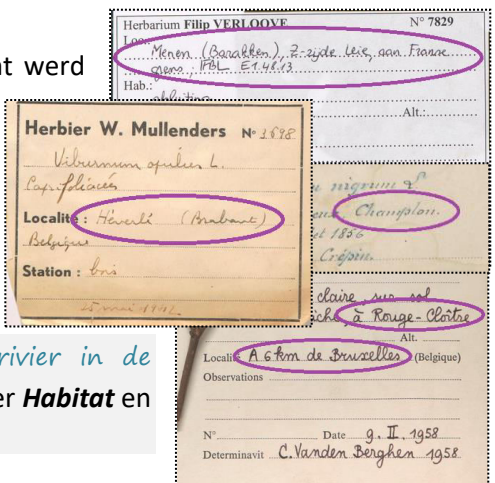 t werd
Herbarium Filip VERLOOVE N° 7829
Loc.
Menen (Barakken), Z-zijde Leie, aan Franse
grens; IFBL E1.48.13
Hab.:
Alt.:
Herbier W. Mullenders N° 3698
Viburnum opulus L.
Caprifoliacées
Localité : Héverlé (Brabant)
Belgique
Station : bois
25 mai
nigrum L.
Champlon.
et 1856
Crépin.
claire, sur sol
à Rouge-Cloître
Alt.
Localité A 6 km de Bruxelles (Belgique)
Observations
N° Date 9. II. 1958
Determinavit C. Vanden Berghen 1958
rivier in de
er Habitat en